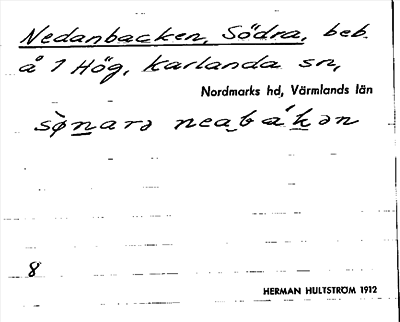 Nedanbacken, Södra, beb.
å 1 Hög, Karlanda sn,
Nordmarks hd, Värmlands län
sø̀narə neabákən
8
HERMAN HULTSTRÖM 1912